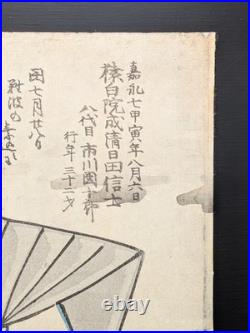 嘉永七甲寅年八月六日
猿白院成清日田信士
八代目市川團十郎
行年三十二才
因七月廿八日
難波の